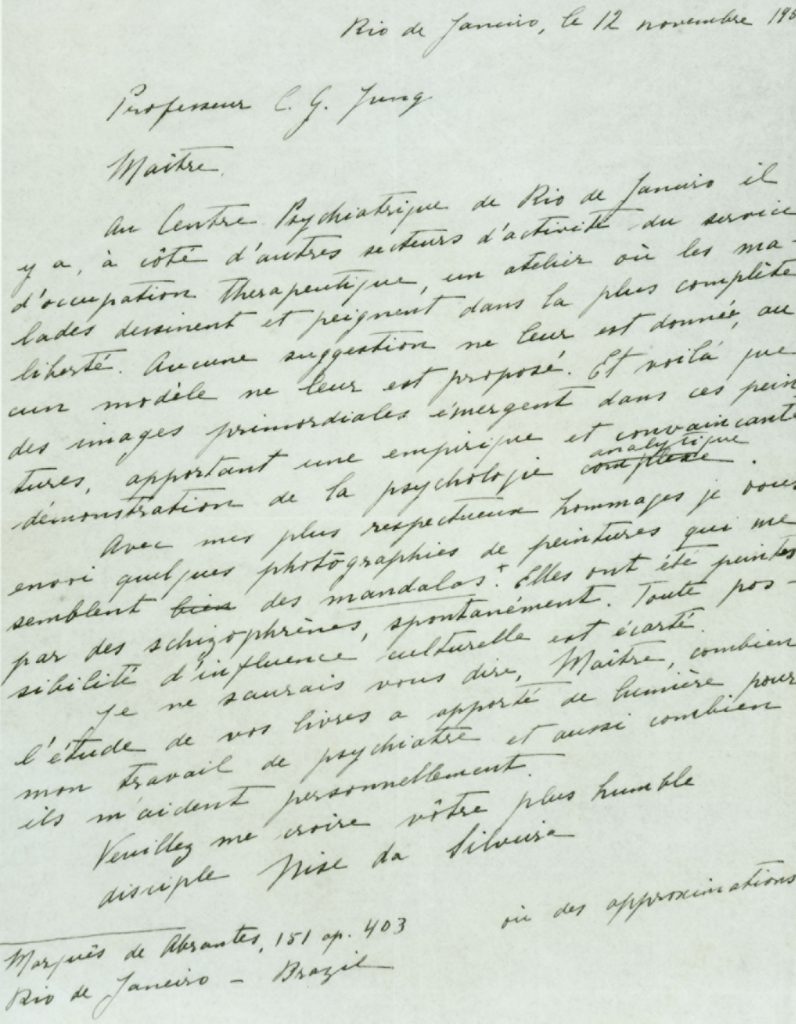 Rio de Janeiro, le 12 novembre 195
Professeur C. G. Jung
Maître,
Au Centre Psychiatrique de Rio de Janeiro il
y a, à côté d'autres secteurs d'activité du service
d'occupation therapeutique, un atelier où les ma-
lades dessinent et peignent dans la plus complète
liberté. Aucune suggestion ne leur est donnée, au
cun modèle ne leur est proposé. Et voilá que
des images primordiales émergent dans ces pein
tures, apportant une empirique et convaincante
démonstration de la psychologie complexe analytique.
Avec mes plus respectueux hommages je vous
envoi quelques photographies de peintures qui me
semblent bien des mandalas⁺. Elles ont été peintes
par des schizophrènes, spontanément. Toute pos-
sibilité d'influence culturelle est écarté.
Je ne saurais vous dire, Maître, combien
l'étude de vos livres a apporté de lumière pour
mon travail de psychiatre et aussi combien
ils m'aident personnellement.
Veuillez me croire vôtre plus humble
disciple Nise da Silveira
où des approximations
Marquês de Abrantes, 151 ap. 403
Rio de Janeiro - Brazil